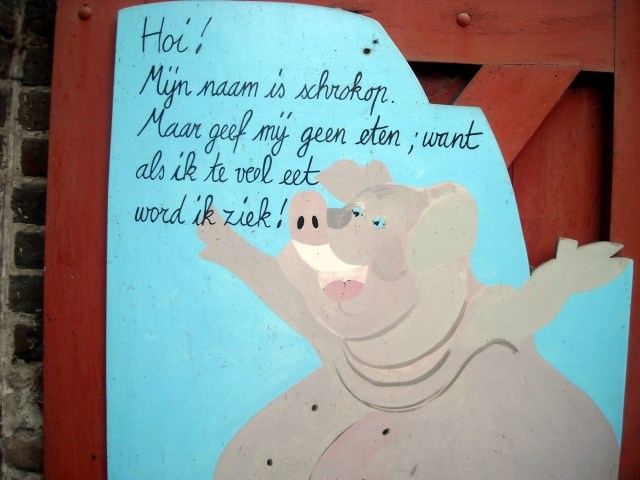 Hoi!
Mijn naam is schrokop.
Maar geef mij geen eten; want
als ik te veel eet
word ik ziek!